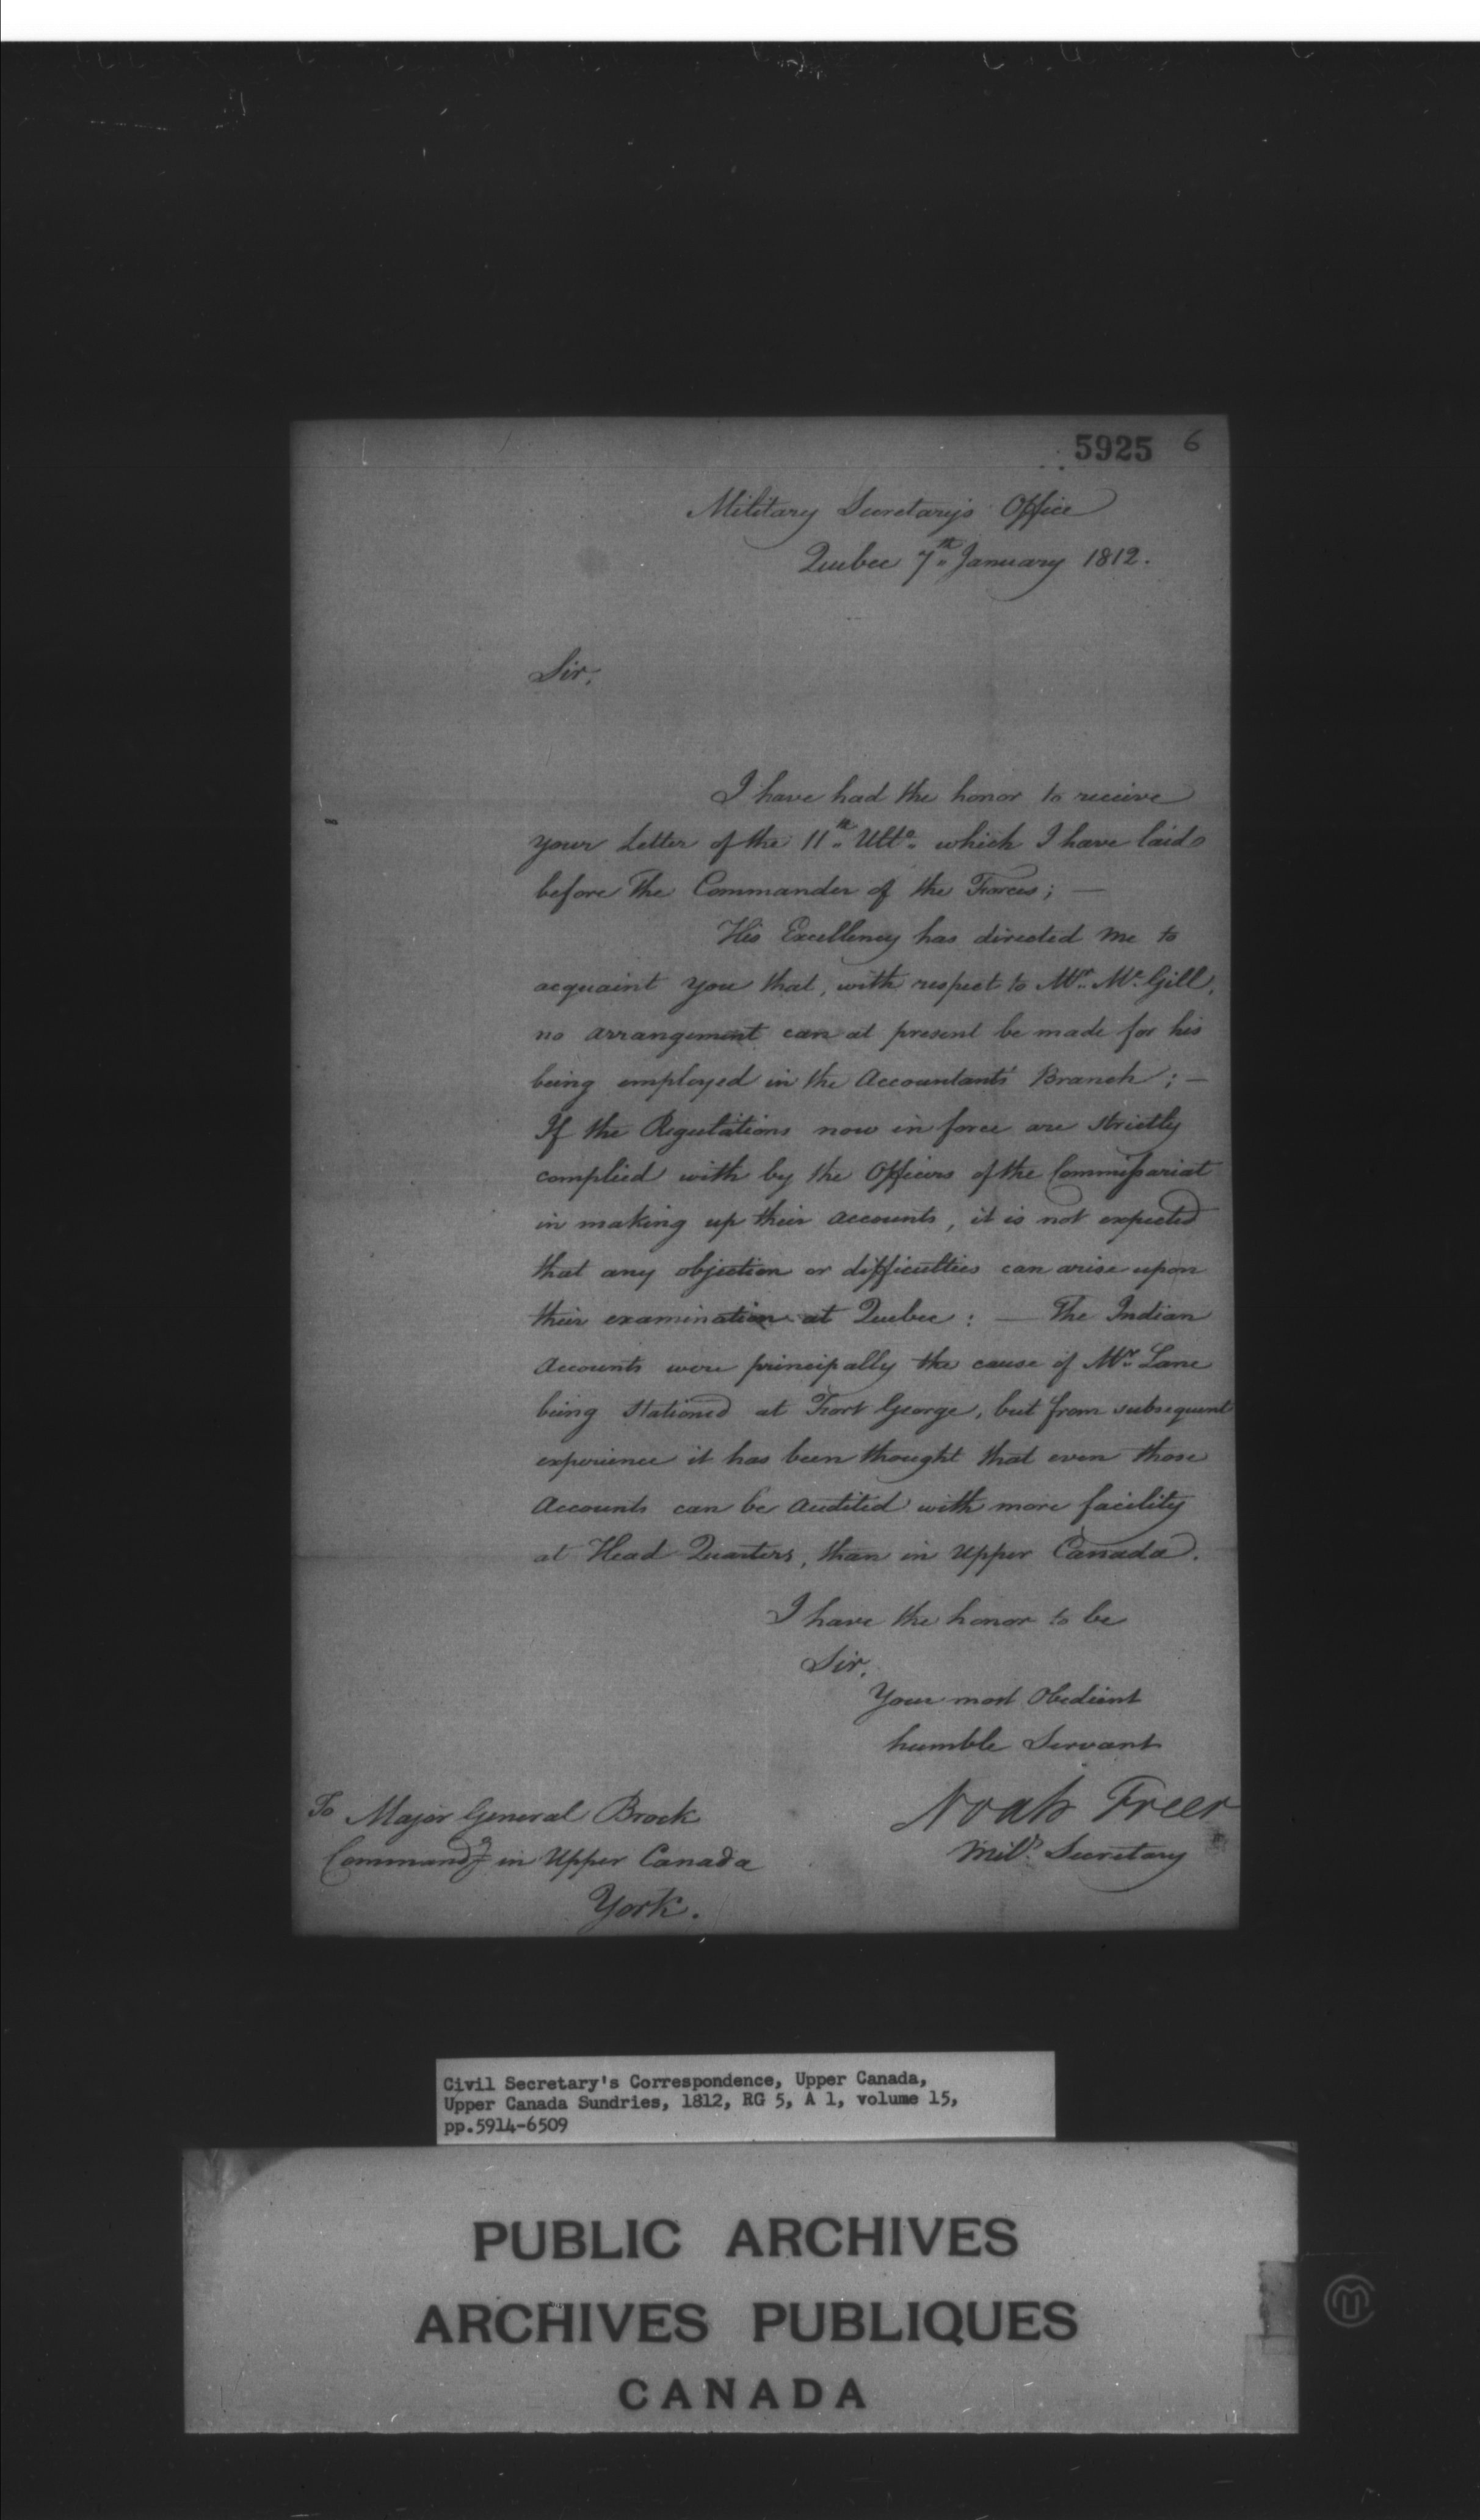 5925 6
Military Secretary's Office
Quebec 7th January 1812.
Sir,
I have had the honor to receive
your Letter of the 11th Ulto which I have laid
before The Commander of the Forces; —
His Excellency has directed me to
acquaint you that, with respect to Mr. Mc. Gill,
no arrangement can at present be made for his
being employed in the Accountants' Branch; —
If the Regulations now in force are strictly
complied with by the Officers of the Commissariat
in making up their accounts, it is not expected
that any objection or difficulties can arise upon
their examination at Quebec: — The Indian
Accounts were principally the cause of Mr. Lane
being stationed at Fort George, but from subsequent
experience it has been thought that even those
Accounts can be audited with more facility
at Head Quarters, than in Upper Canada.
I have the honor to be
Sir,
Your most Obedient
humble Servant
Noah Freer
Mily. Secretary
To Major General Brock
Commandg in Upper Canada
York.
Civil Secretary's Correspondence, Upper Canada,
Upper Canada Sundries, 1812, RG 5, A 1, volume 15,
pp.5914-6509
PUBLIC ARCHIVES
ARCHIVES PUBLIQUES
CANADA